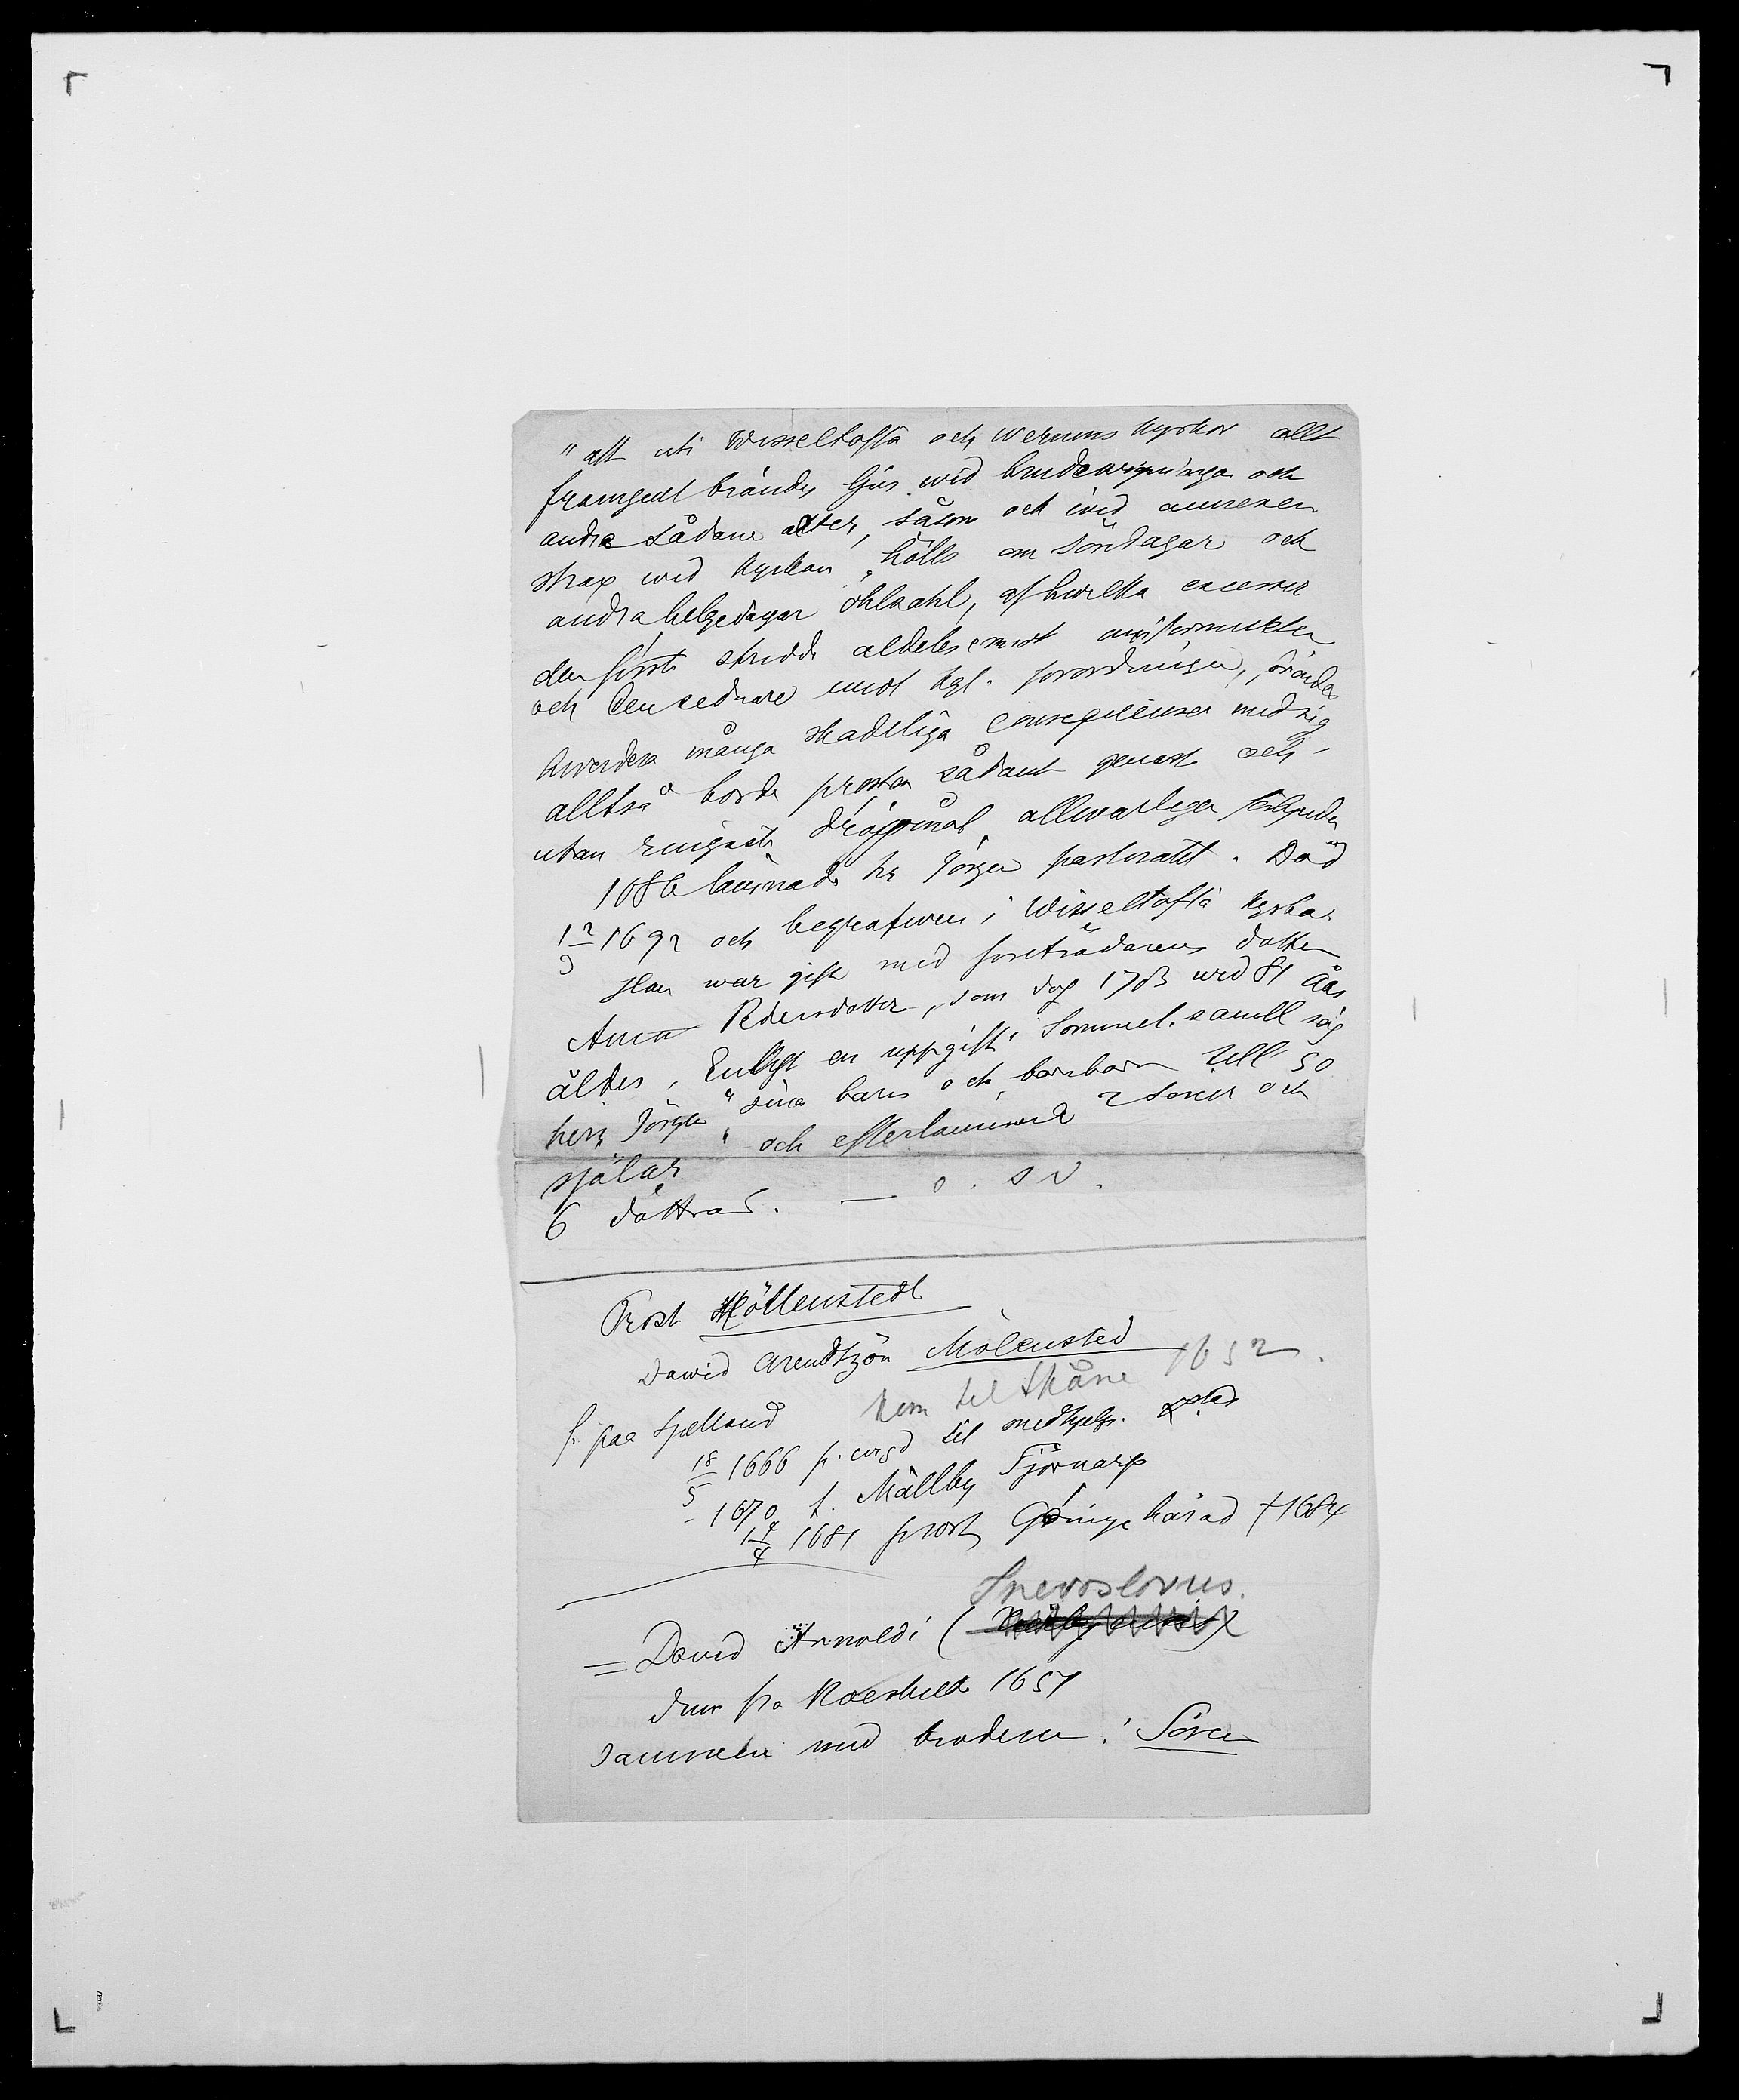 "att uti Wisseltofta och Werums kyrkor allt
framgent brändes ljus wid brudewigningar och
andra sådane acter, såsom och wid annexen
strax wid kyrkan hålls om söndagar och
andra helgedagar öhlsahl, af hwilka excesser
den förste stridde aldeles emot
och den sednare emot kgl. förordningen,
hwardera många skadeliga consequenser med sig
alltså borde prosten sådant genast och
utan ringaste dröjsmål allwarligen förbjuda
1686 lämnade hr Jörgen pastoratet. Död
12/3 1692 och begrafwen i Wisseltofta kyrka.
Han war gift med företrädarens dotter
Anna Pedersdotter, som dog 1703 wid 81 års
ålder. Enligt en uppgift i Sommel. samll såg
herr Jörgen "sina barn och barnbarn till 50
själar" och efterlämnade 2 söner och
6 döttrar. — o. s v.
Prost Möllenstedt
Dawid Arendtzön Mölensted
f. paa Sjelland kom til Skåne 1652.
18/5 1666 p. wigd til medhjelp.
- 1670 f. Mällby Tjörnarp
14/4 1681 prost Göinge härad † 1684
Snevoslovius.
= David Arnoldi (
dim fra Roeskilde 1657
sammen med broderen: Sören